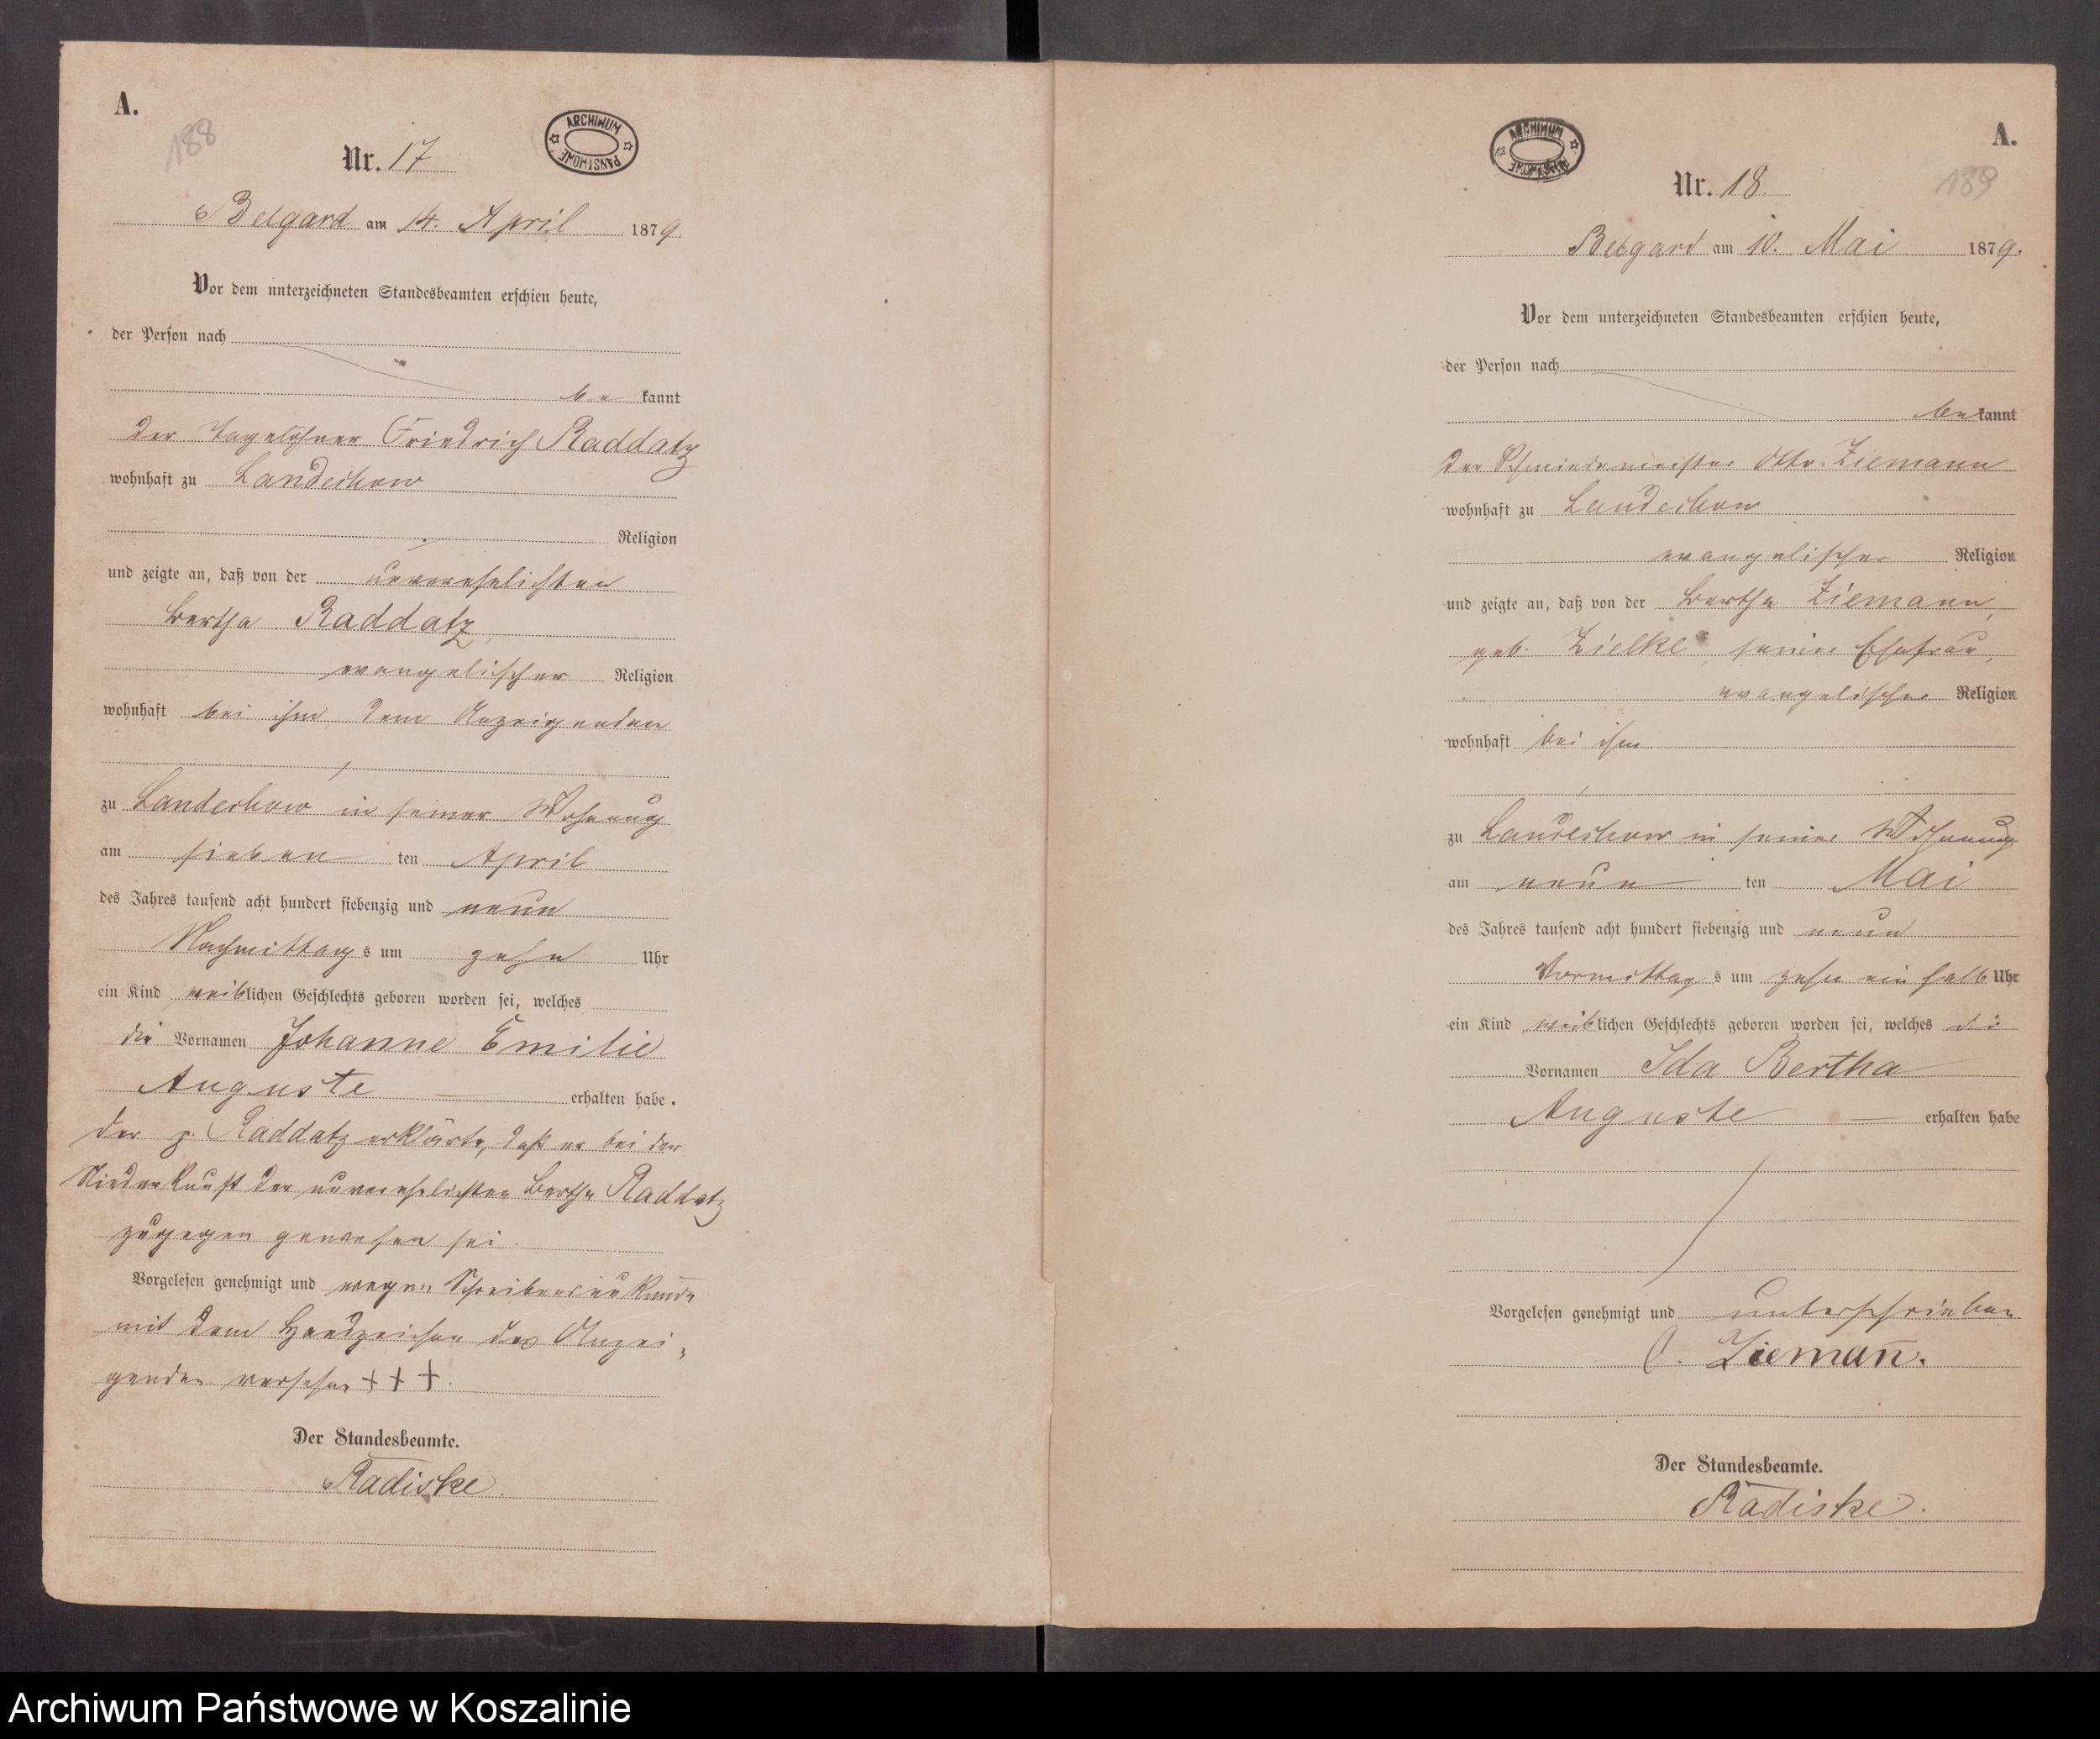 A.
188
Nr. 17
ARCHIWUM PAŃSTWOWE
Belgard am 14. April 1879.
Vor dem unterzeichneten Standesbeamten erschien heute,
der Person nach
be kannt
der Tagelöhner Friedrich Raddatz
wohnhaft zu Landechow
Religion
und zeigte an, daß von der unverehelichten
Bertha Raddatz,
evangelischer Religion
wohnhaft bei ihm dem Anzeigenden
zu Landechow in seiner Wohnung
am sieben ten April
des Jahres tausend acht hundert siebenzig und neun
Nachmittag s um zehn Uhr
ein Kind weiblichen Geschlechts geboren worden sei, welches
die Vornamen Johanne Emilie
Auguste erhalten habe.
Der p. Raddatz erklärte, daß er bei der
Niederkunft der unverehelichten Bertha Raddatz
zugegen gewesen sei.
Vorgelesen genehmigt und wegen Schreibensunkunde
mit dem Handzeichen des Anzei-
genden versehen +++.
Der Standesbeamte.
Radiske.
A.
189
Nr. 18
ARCHIWUM PAŃSTWOWE
Belgard am 10. Mai 1879.
Vor dem unterzeichneten Standesbeamten erschien heute,
der Person nach
be kannt
der Schmiedemeister Otto Ziemann
wohnhaft zu Landechow
evangelischer Religion
und zeigte an, daß von der Bertha Ziemann,
geb. Zielke, seiner Ehefrau,
evangelischer Religion
wohnhaft bei ihm
zu Landechow in seiner Wohnung
am neun ten Mai
des Jahres tausend acht hundert siebenzig und neun
Vormittag s um zehn ein halb Uhr
ein Kind weiblichen Geschlechts geboren worden sei, welches die
Vornamen Ida Bertha
Auguste erhalten habe
Vorgelesen genehmigt und unterschrieben
O. Ziemañ.
Der Standesbeamte.
Radiske.
Archiwum Państwowe w Koszalinie